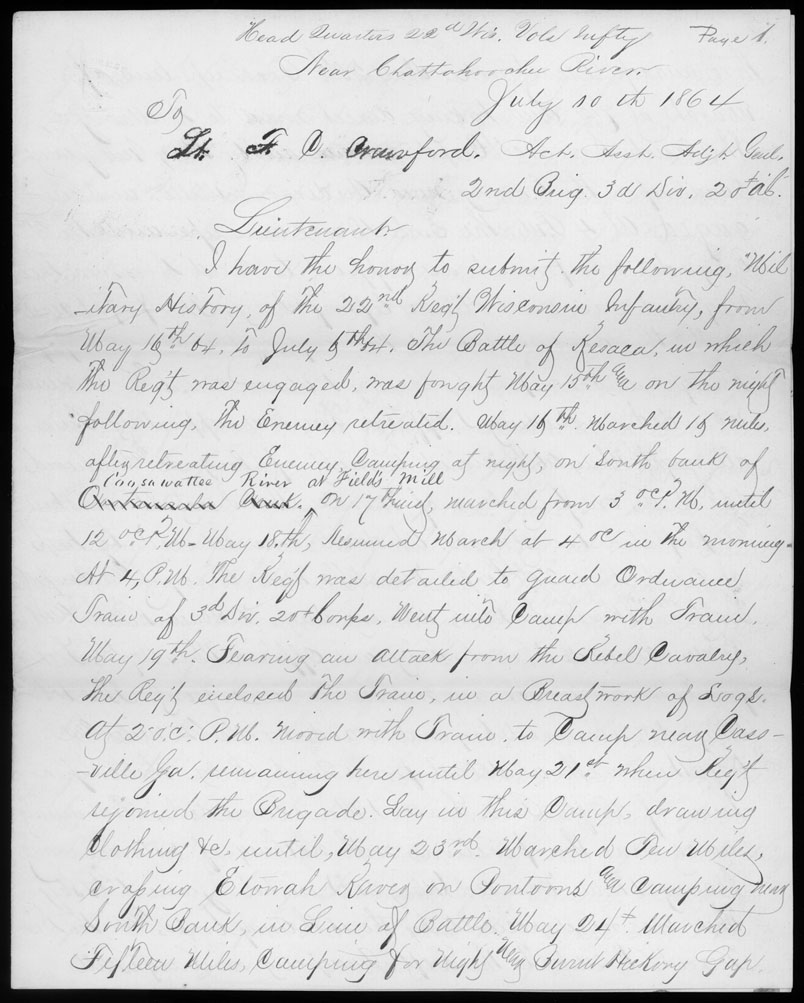 Head Quarters 22d Wis. Vols Infty Page 1.
Near Chattahoochee River.
July 10th 1864
To
Lt. F. C. Crawford. Act. Asst. Adjt Genl.
2nd Brig. 3d Div. 20th AC.
Lieutenant.
I have the honor to submit, the following, "Mil
-itary History, of the 22nd Reg't Wisconsin Infantry, from
May 16th 64. to July 6th 64. The Battle of Resaca, in which
the Reg't was engaged, was fought May 15th & on the night
following, the Enemey retreated. May 16th. Marched 16 miles,
after retreating Enemey Camping at night, on South bank of
Coosawattee River at Field's Mill
On 17th inst, marched from 3 oc P.M. until
12 oc P.M- May 18.th, Resumed March at 4 oc in the morning-
At 4, P.M. The Reg't was detailed to guard Ordnance
Train of 3d Div. 20th Corps. Went into Camp with Train.
May 19th. Fearing an attack from the Rebel Cavalry,
the Reg't enclosed the Train, in a Breastwork of Logs.
At 2 oc. P.M. moved with Train. to Camp near Cass-
-ville Ga. remaining here until May 21st when Reg't
rejoined the Brigade. Lay in this Camp, drawing
Clothing &c, until, May 23rd. Marched Ten Miles,
crossing Etowah River on Pontoons & Camping near
South Bank, in Line of Battle. May 24th. Marched
Fifteen Miles, Camping for Night Near Burnt Hickory Gap.